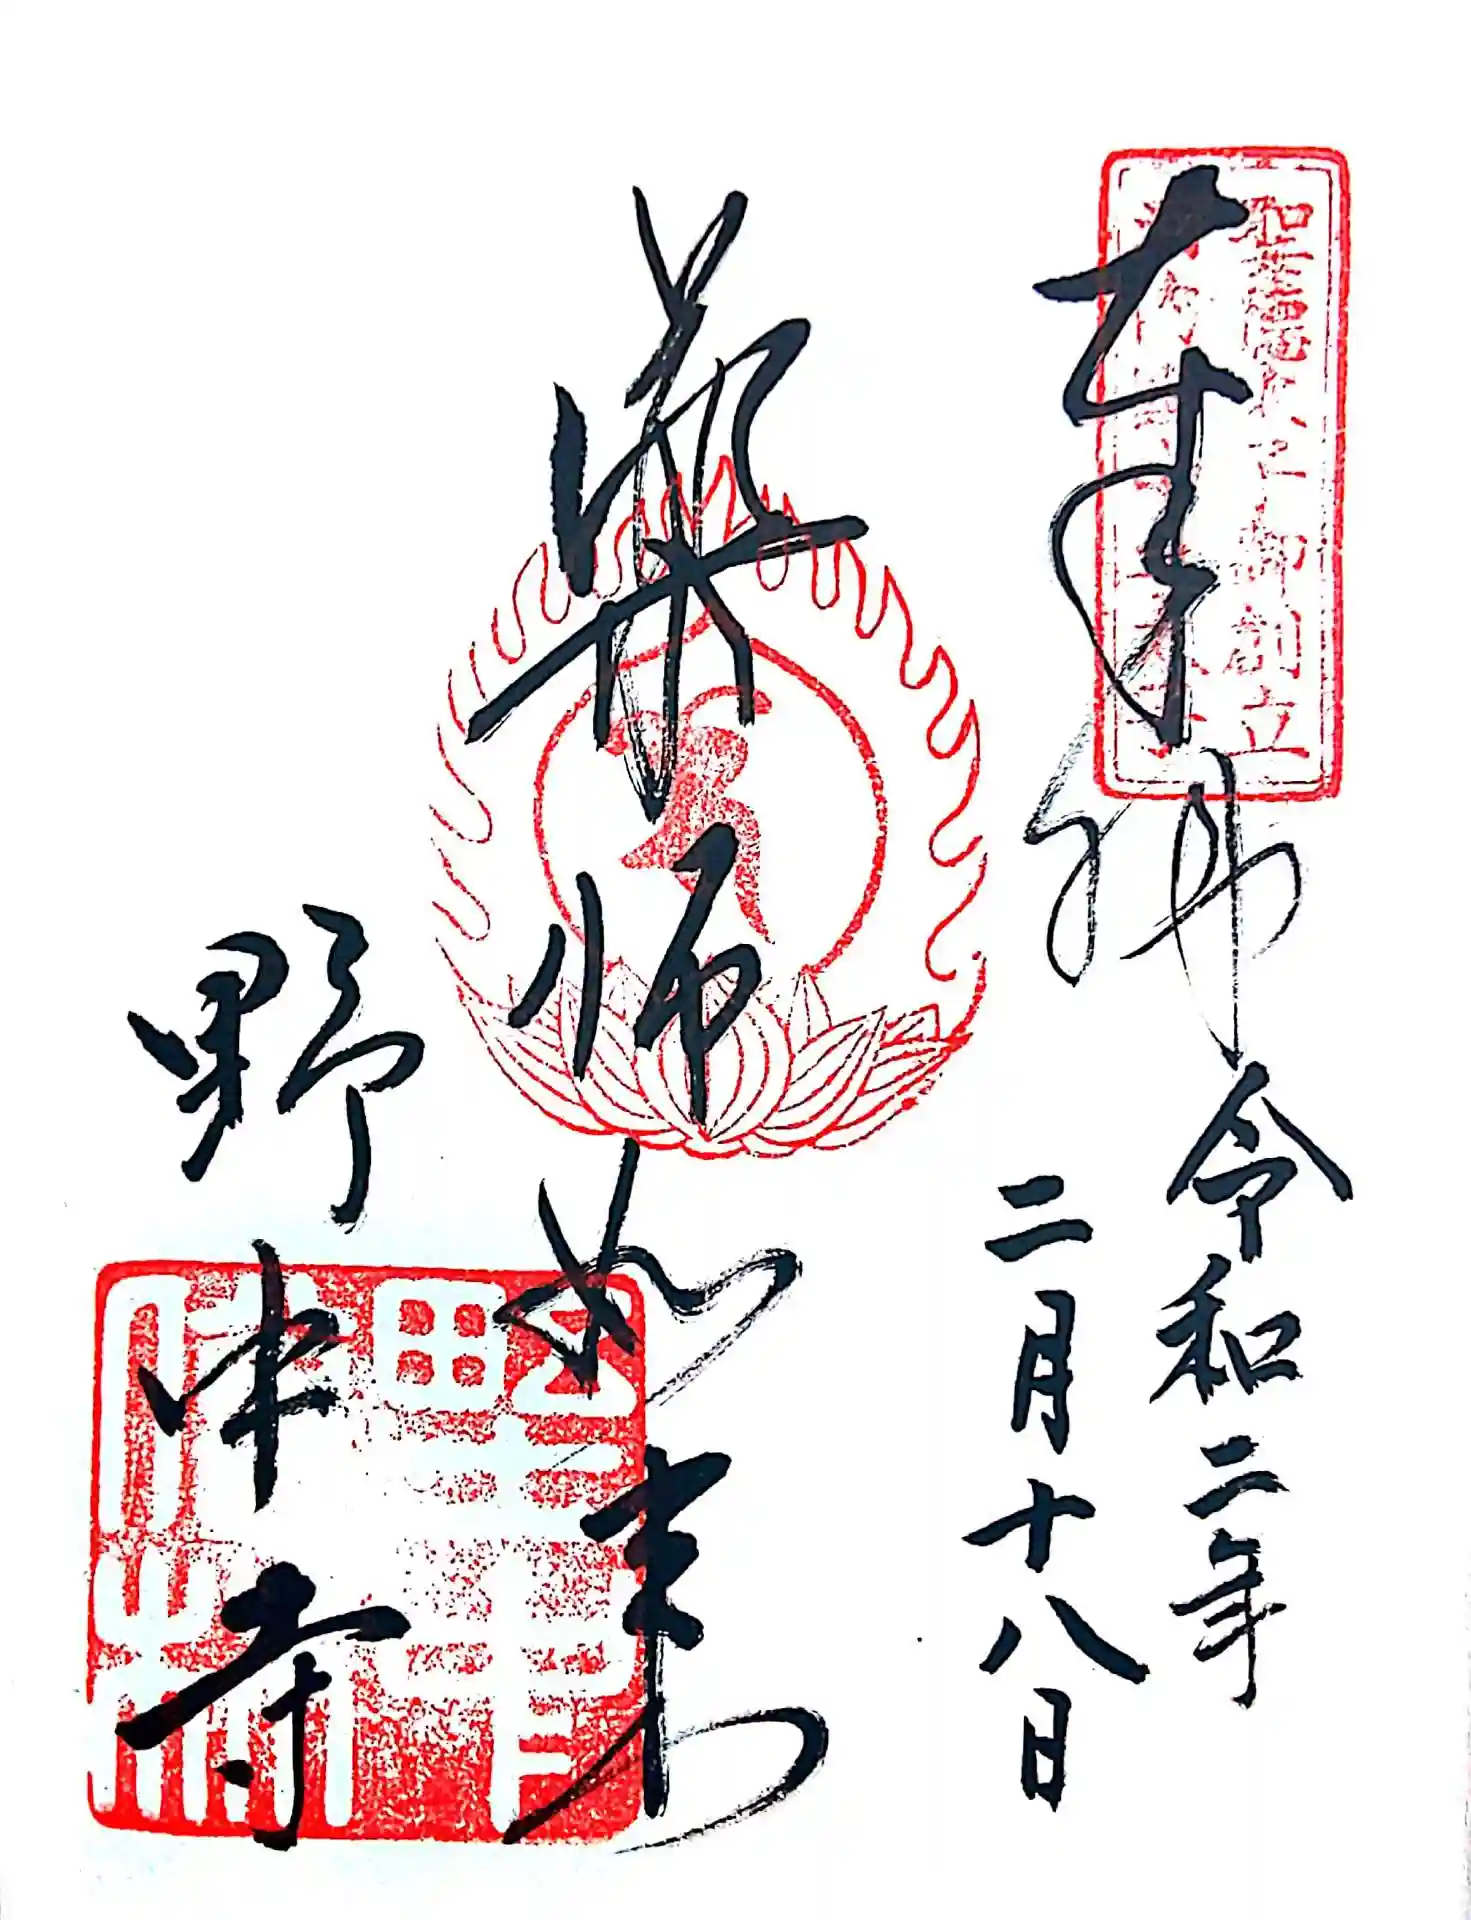 奉拝
令和二年
二月十八日
薬師如来
野中寺
聖徳太子御創立